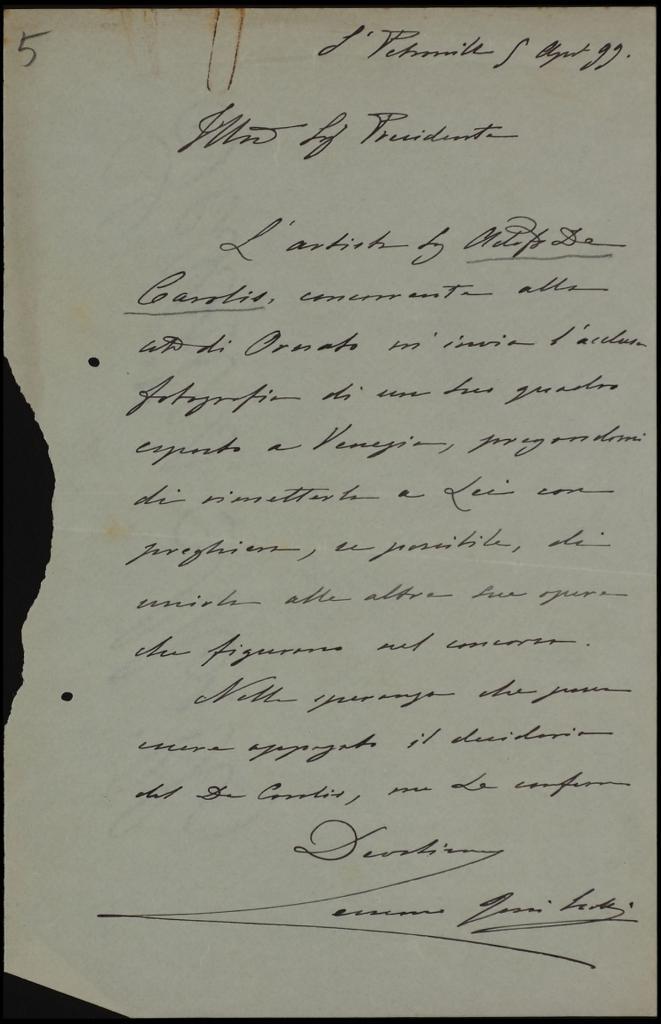 5
5 Ag 99.
Illmo Sig Presidente
L'artista Sig Adolfo De
Carolis, concorrente alla
di Ornato m'invia l'acclusa
fotografia di un suo quadro
esposto a Venezia, pregandomi
di rimetterla a Lei con
preghiera, se possibile, di
unirla alle altre sue opere
che figurano nel concorso.
Nella speranza che possa
essere appagato il desiderio
del De Carolis, me Le confermo
Devotissimo